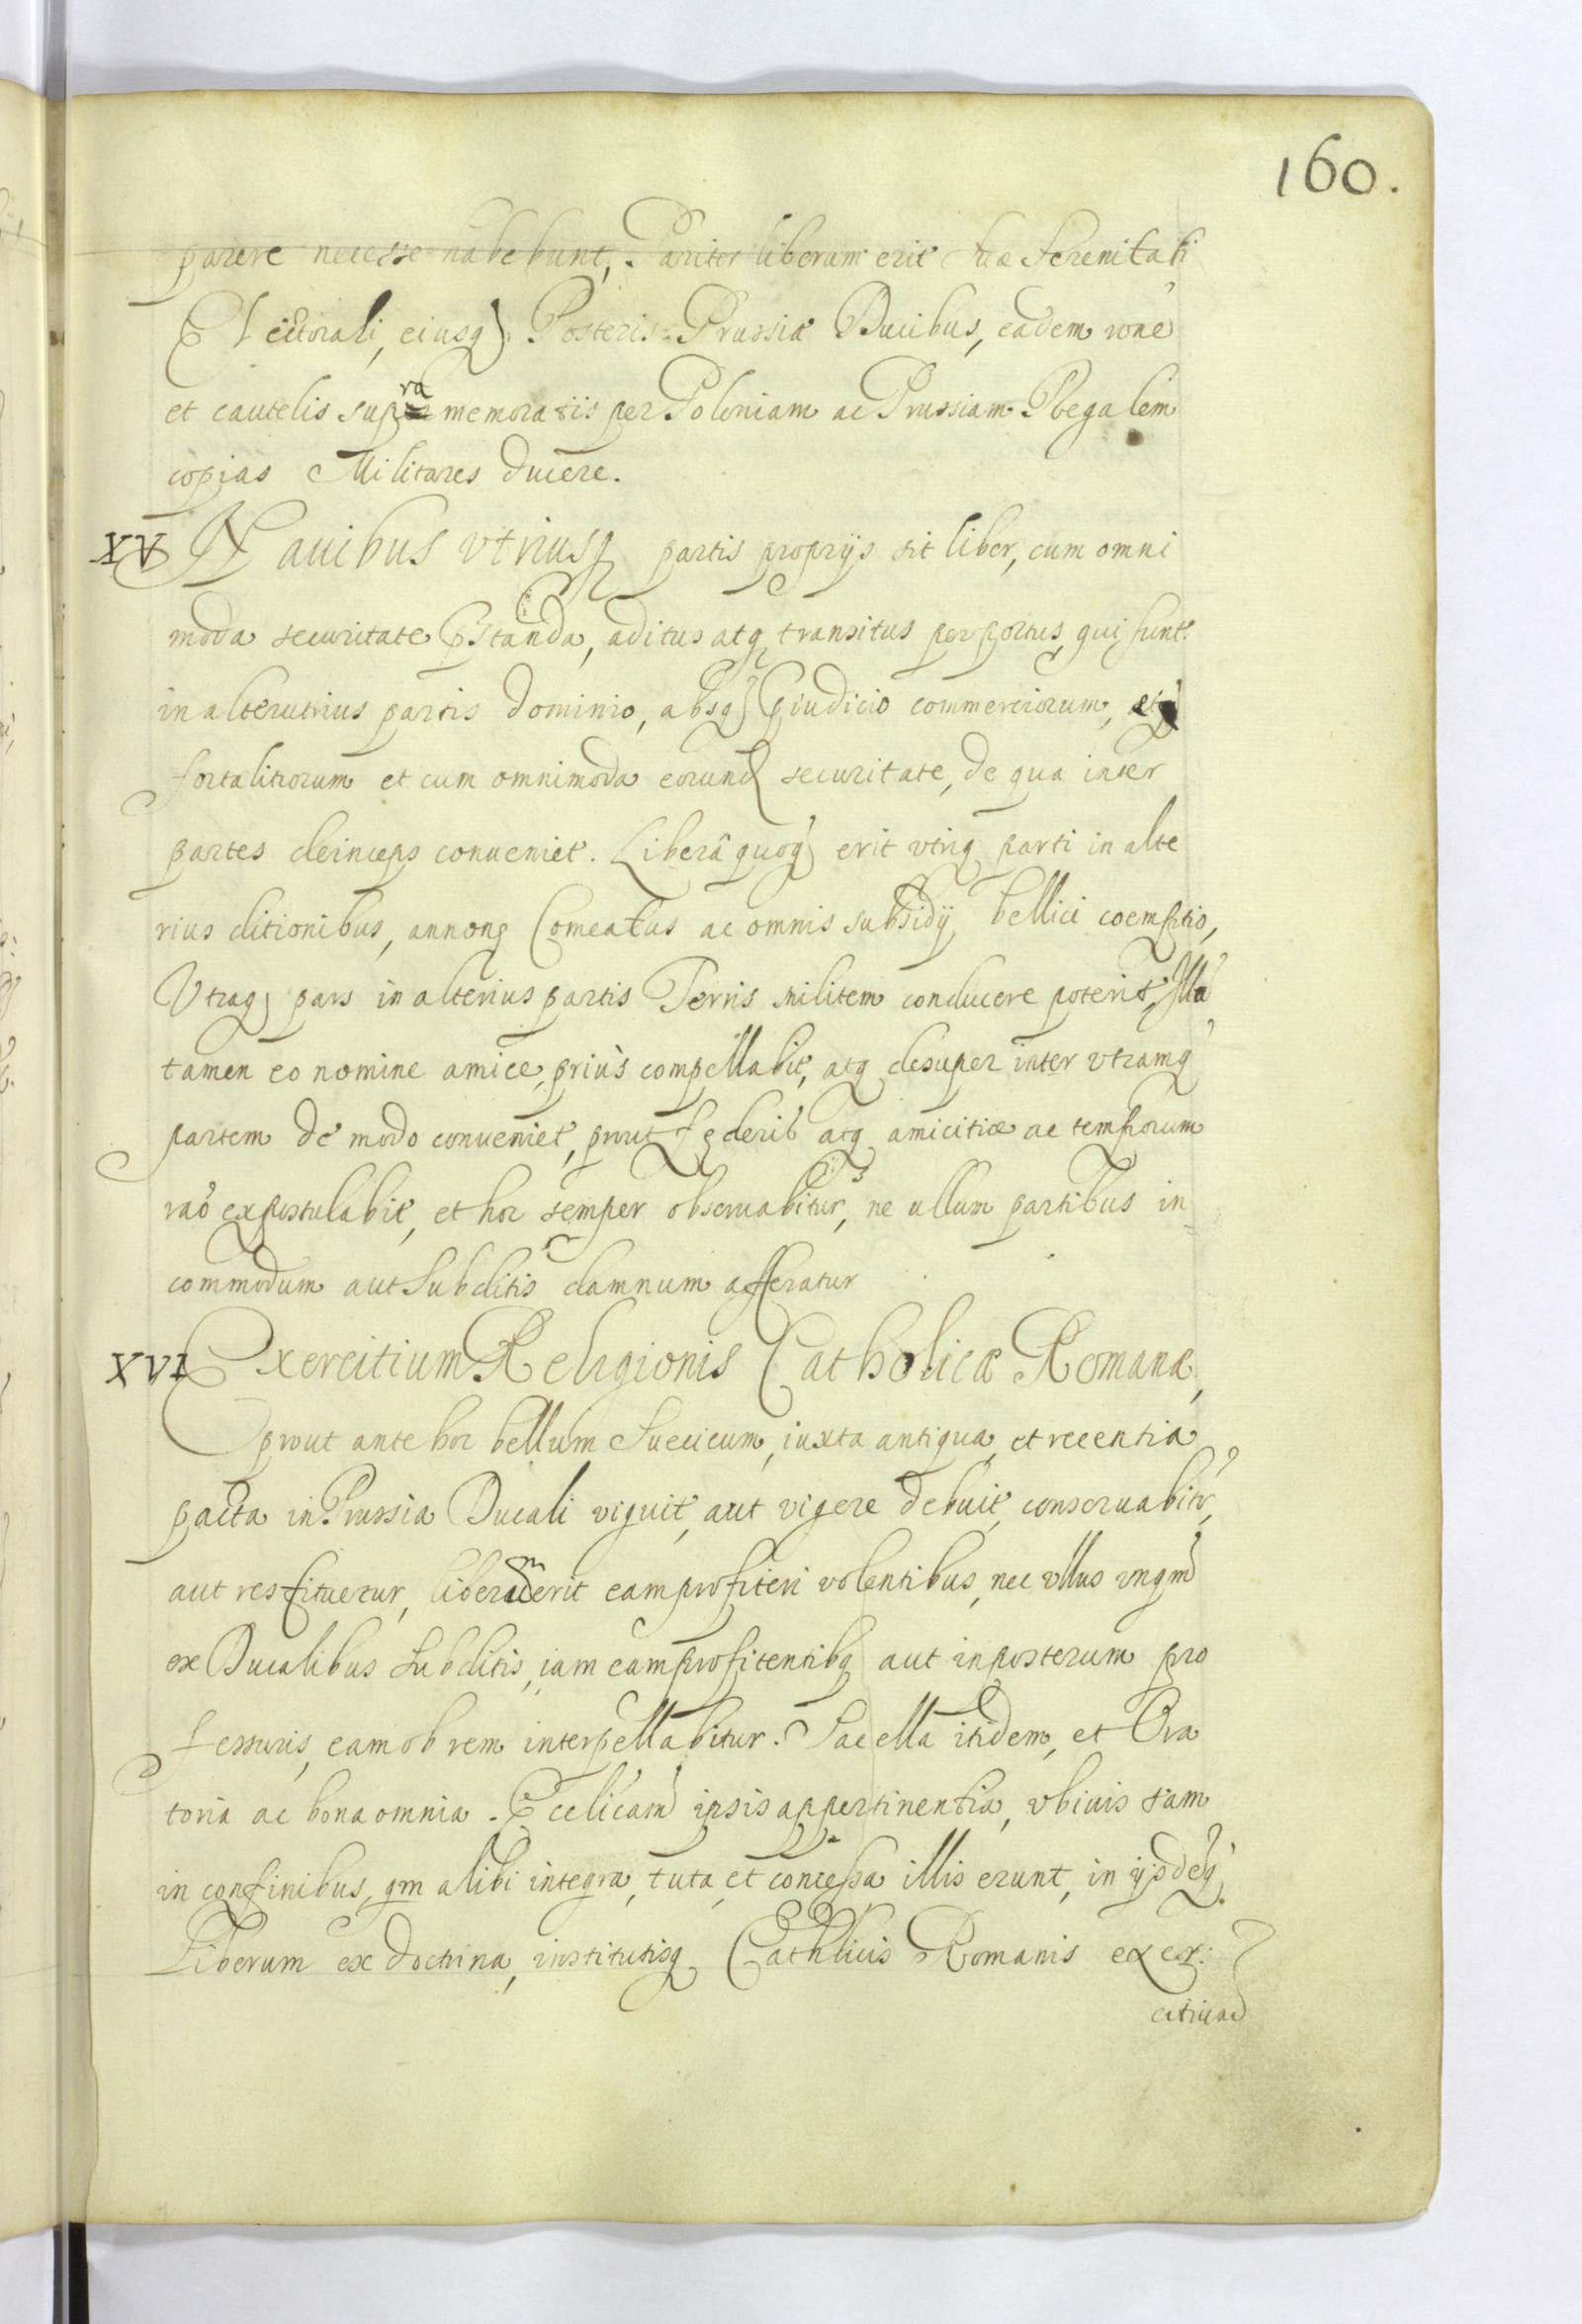 160.
parere necesse habebunt, Pariter liberum erit suæ Serenitati
Electorali, eiusq Posteris Prussiæ Ducibus, eadem rone
et cautelis supra memoratis per Poloniam ac Prussiam Regalem
copias Militares ducere.
XV Navibus vtriusq partis proprijs sit liber, cum omni
moda securitate pstanda, aditus atq transitus per portus, qui sunt
in alterutrius partis dominio, absq piudicio commerciorum, et
fortalitiorum et cum omnimoda eorund securitate, de qua inter
partes deinceps conueniet. Liberâ quoq erit vtriq parti in alte
rius ditionibus, annonę Comeatus ac omnis subsidÿ bellici coemptio,
Vtraq pars in alterius partis Terris militem conducere poterit, Illa
tamen eo nomine amice, priùs compellabit, atq desuper inter vtramq
partem de modo conueniet, prout fęderib atq amicitiæ ac temporum
rao expostulabit, et hoc semper obseruabitur, ne ullum partibus in=
commodum aut Subditis damnum afferatur
XVI Exercitium Religionis Catholicæ Romanæ,
prout ante hoc bellum Suecicum, iuxta antiqua, et recentia
pacta in Prussia Ducali viguit, aut vigere debuit, conseruabitr,
aut restituetur, liberum erit eam profiteri volentibus, nec vllus vnqm
ex Ducalibus Subditis, iam eam profitentibq aut inposterum pro
fessuris, eam ob rem interpellabitur. Sacella itidem, et Ora
toria ac bona omnia Ecclicam ipsis appertinentia, vbiuis tam
in confinibus, qm alibi integra, tuta, et concessa illis erunt, in ijsdeq
Liberum ex doctrina, institutisq Catholicis Romanis exer:
citium